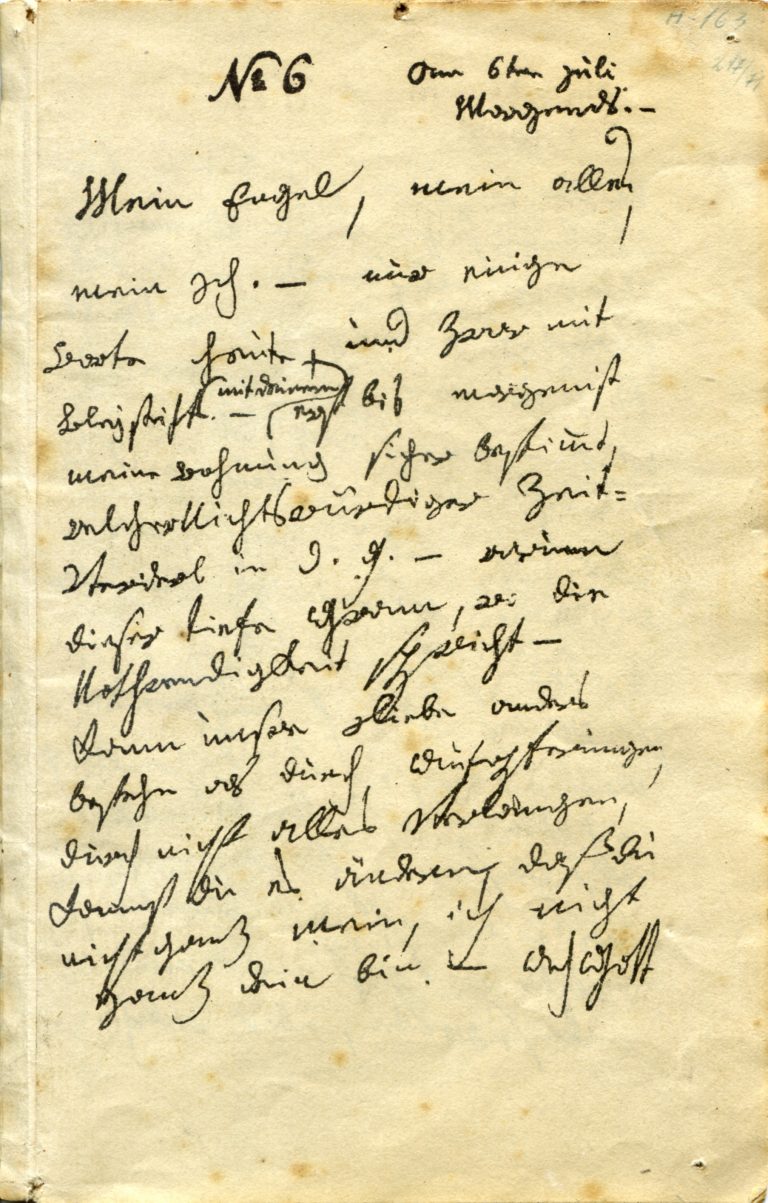 № 6 am 6ten Juli
Morgends. –
Mein Engel, mein alles,
mein Ich. – nur einige
Worte heute, und zwar mit
Bleystift – (mit deinem)
erst bis morgen ist
meine Wohnung sicher bestimt,
welcher Nichtswürdiger Zeit-
Verderb in d. g. – warum
dieser tiefe Gram, wo die
Nothwendigkeit spricht –
Kann unsre Liebe anders
bestehn als durch Aufopferungen,
durch nicht alles Verlangen,
Kannst du es ändern, daß du
nicht ganz mein, ich nicht
ganz dein bin – Ach Gott